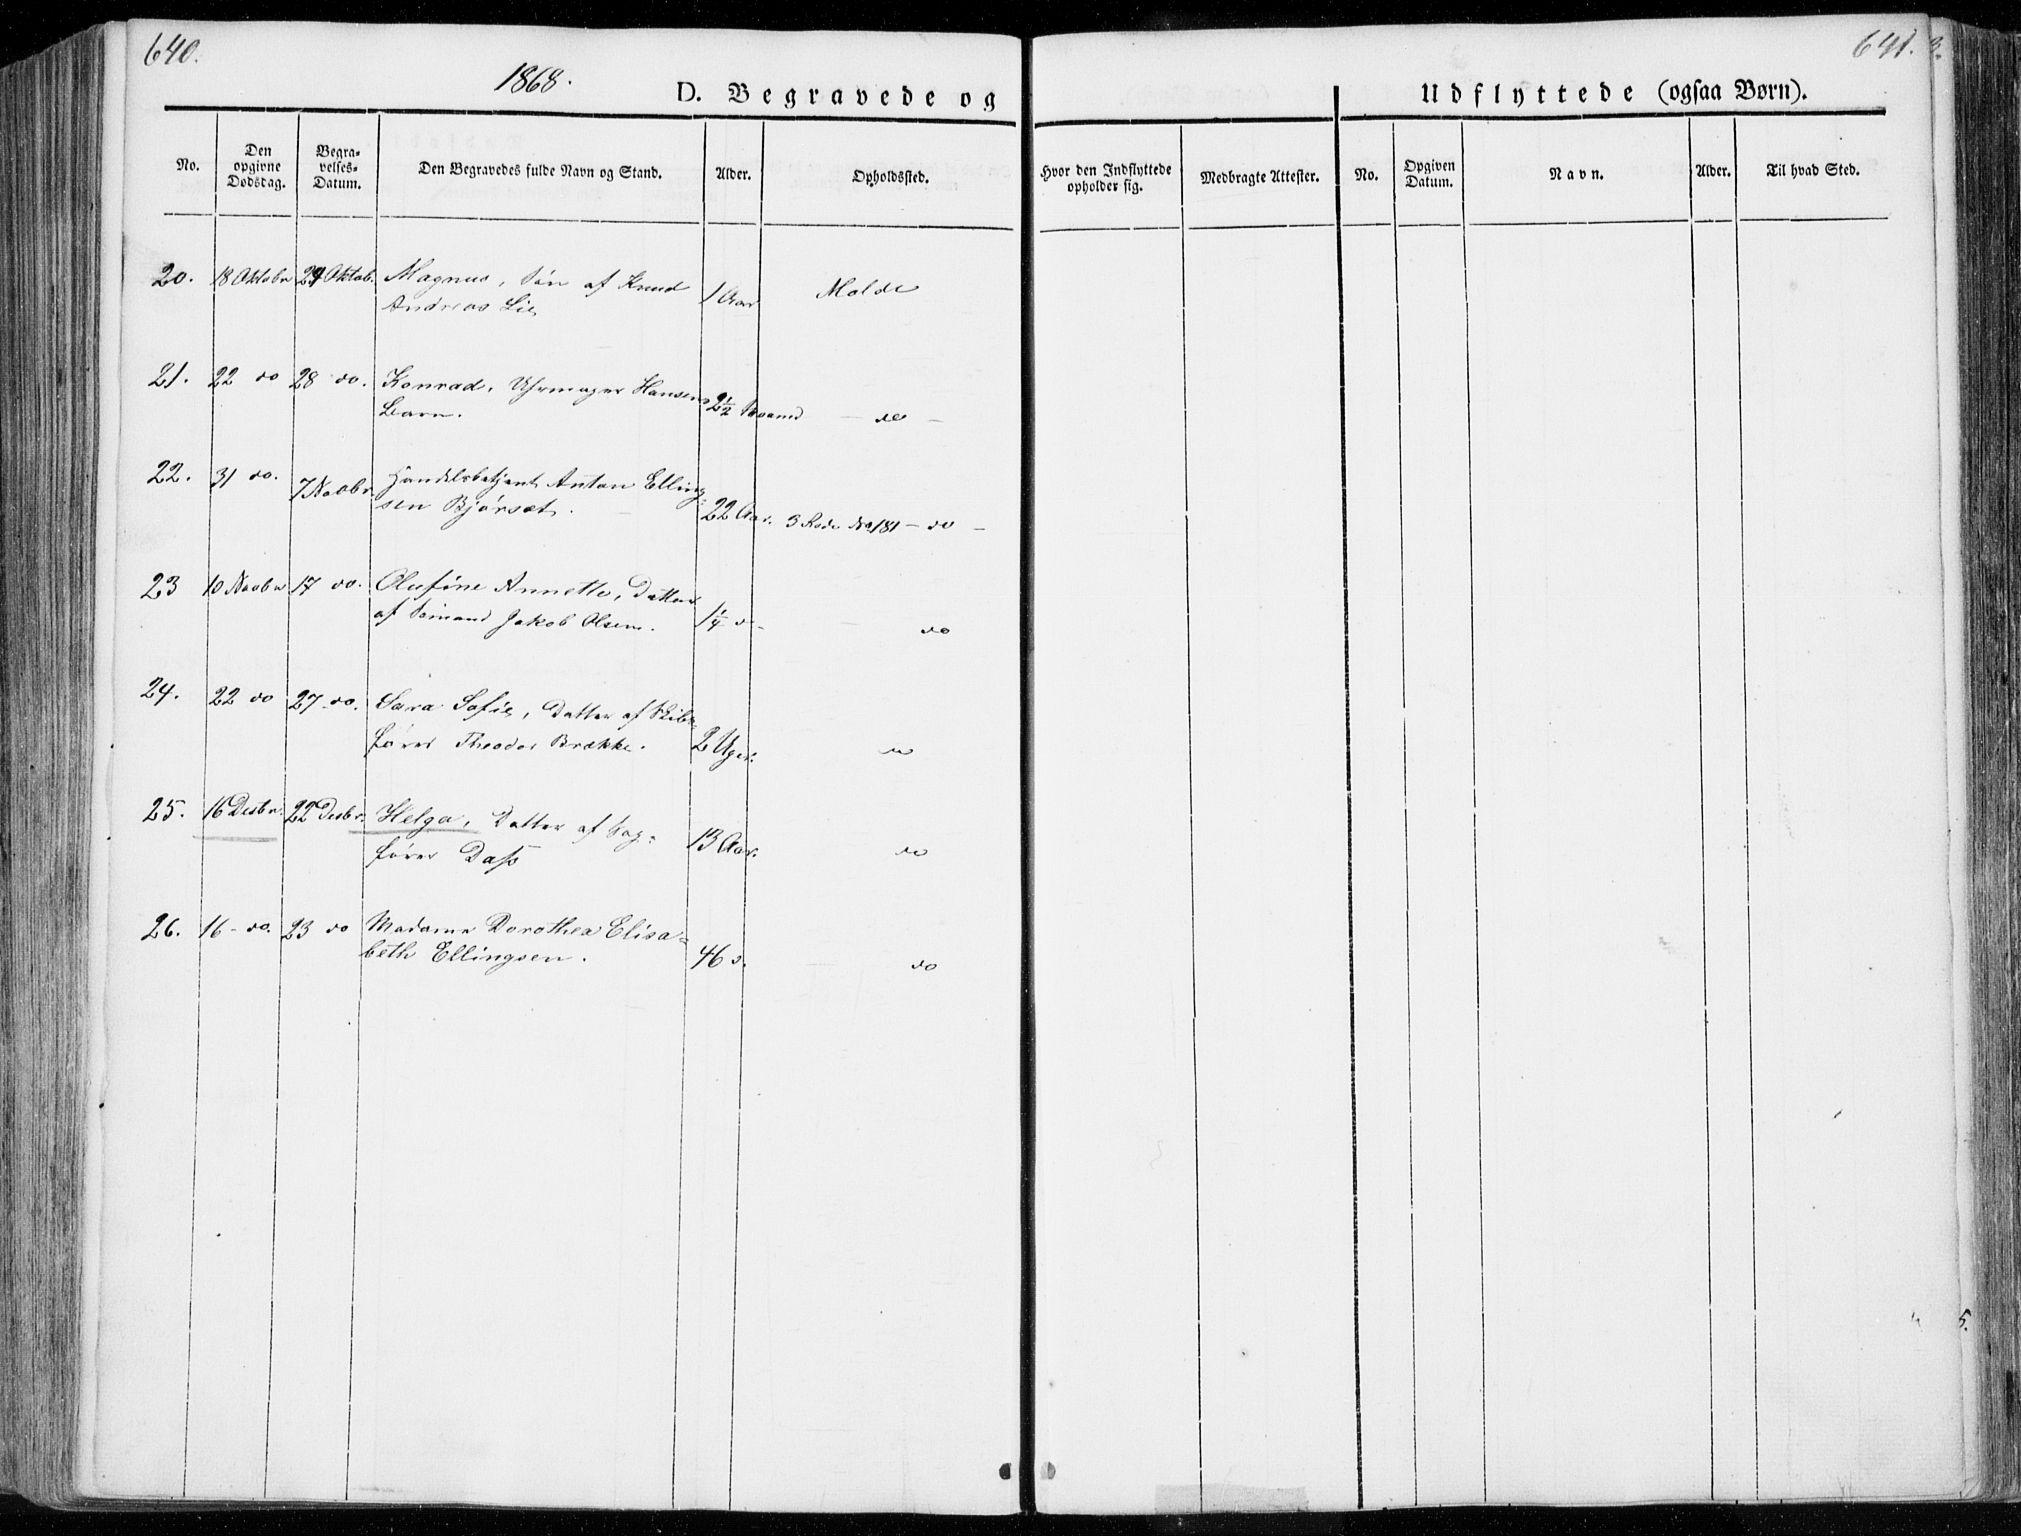 640.
1868.
D. Begravede og
No.
Den opgivne Dødsdag.
Begravelses-Datum.
Den Begravedes fulde Navn og Stand.
Alder.
Opholdssted.
20. 18 Oktobr Oktob. Magnus, Søn af Knud
Andreas Lie, 1 Aar Molde
21. 22 do 28 do. Konrad, Uhrmager Hansens
Barn. 2½ do
22. 31 do. 7 Novbr. Handelsbetjent Anton Elling-
sen Bjørset. 22 Aar. 3 Rode No 181 - do -
23 10 Novbr 17 do. Olufine Annette, Datter
af Sømand Jakob Olsen. 1¼ do
24. 22 do 27 do. Sara Sofie, Datter af Skibs-
fører Theodor Brække. 2 Uger. do
25. 16 Desbr. 22 Desbr. Helga, Datter af Sag-
fører Dass 13 Aar. do
26. 16 - do. 23 do Madame Dorothea Elisa-
beth Ellingsen. 46 do
641.
Udflyttede (ogsaa Børn).
Hvor den Indflyttede opholder sig.
Medbragte Attester.
No.
Opgiven Datum.
Navn.
Alder.
Til hvad Sted.